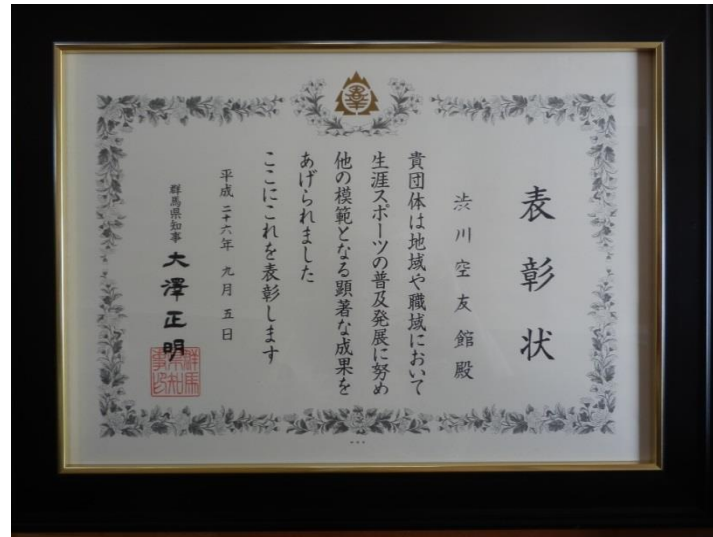 表彰状
渋川空友館殿
貴団体は地域や職域において
生涯スポーツの普及発展に努め
他の模範となる顕著な成果を
あげられました
ここにこれを表彰します
平成二十六年九月五日
群馬県知事 大澤正明
群馬県知事印